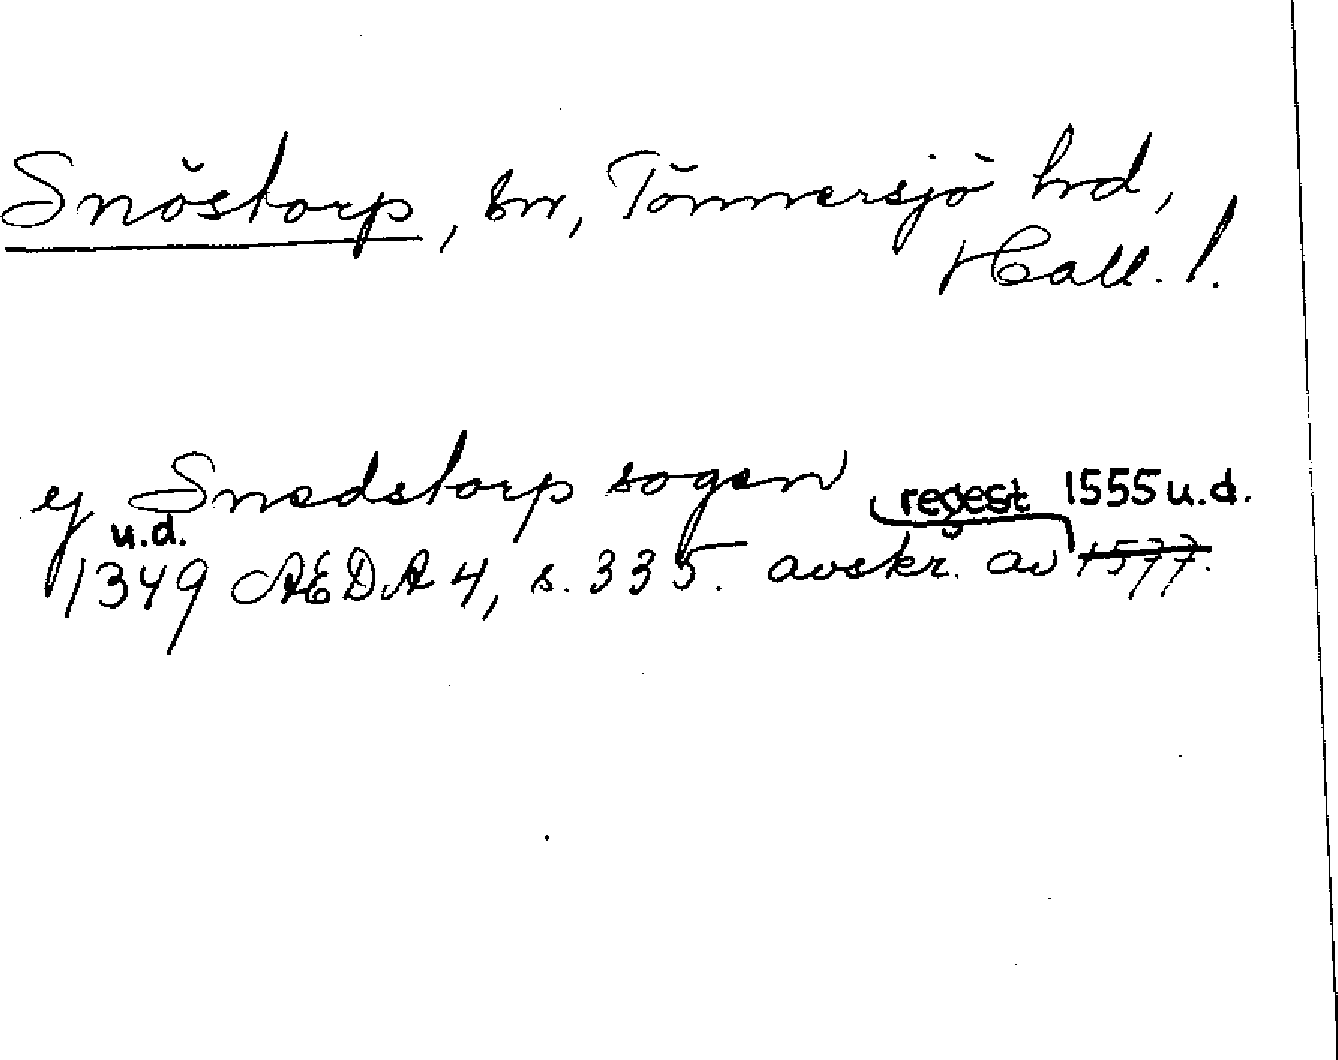 Snöstorp, sn, Tönnersjö hd,
Hall. l.
ej Snedstorp sogen
regest 1555 u.d.
u.d.
1349 ÆDA 4, s. 335. avskr. av 1577.